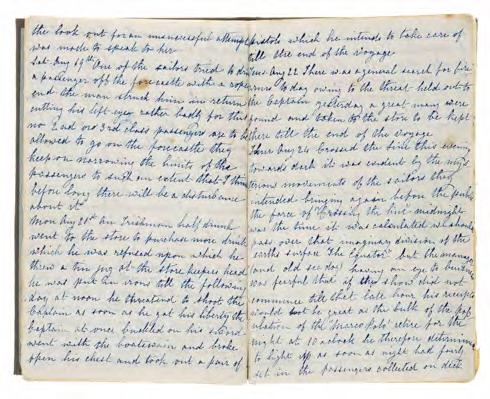 the look out for an unsuccessful attempt
was made to speak to her
Sat. Aug 19th One of the sailors tried to
a passenger off the forecastle with a rope
end the man struck him in return
cutting his left eye rather badly for this
no 2nd or 3rd class passengers are to be
allowed to go on the forecastle they
keep on narrowing the limits of the
passengers to such an extent that I think
before long there will be a disturbance
about it
Mon Aug 21st An Irishman half drunk
went to the store to purchase more drink
which he was refused upon which he
threw a tin jug at the store keepers head
he was put in irons till the following
day at noon he threatend to shoot the
Captain as soon as he got his liberty the
Captain at once buckled on his sword
went with the boatswain and broke
open his chest and took out a pair of
pistols which he intends to take care of
till the end of the voyage
Tues Aug 22 There was a general search for fire
arms to day owing to the threat held out to
the Captain yesterday a great many were
found and taken to the store to be kept
there till the end of the voyage
Thur Aug 24 Crossed the line this evening
towards dark it was evident by the mys
terious movements of the sailors they
intended bringing again before the public
the farce of Crossing the line midnight
was the time it was calculated we should
pass over that imaginary division of the
earths surface The Equator but the manager
(and old sea dog) having an eye to business
was fearful that if the show did not
commence till that late hour his receipts
would not be great as the bulk of the pop
ulation of the Marco Polo retire for the
night at 10 oclock he therefore determined
to light up as soon as night had fairly
set in the passengers collected on deck